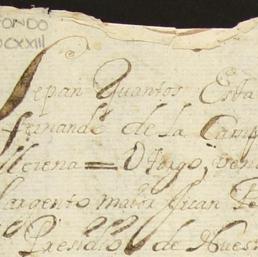 FONDO
CCXXIII
Sepan Quantos Esta
fernandẽ de la Camp
Llerena = Otorgo, Ven
sargento maior Juan Pe
Presidio de Nuest